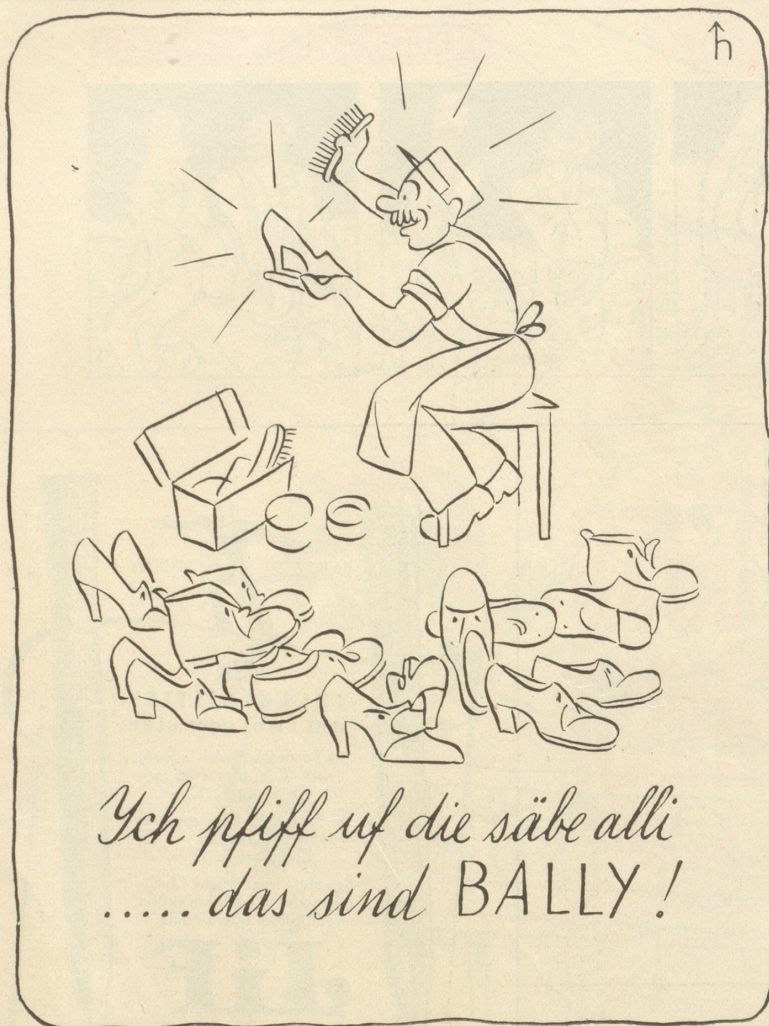 Ych pfiff uf die säbe alli
..... das sind BALLY !